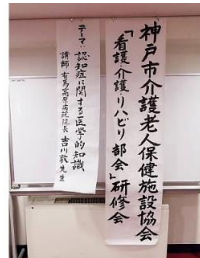 神戸市介護老人保健施設協会
「看護・介護・リハビリ部会」研修会
テーマ:認知症に関する医学的知識
講師 有馬高原病院院長 吉川敦先生